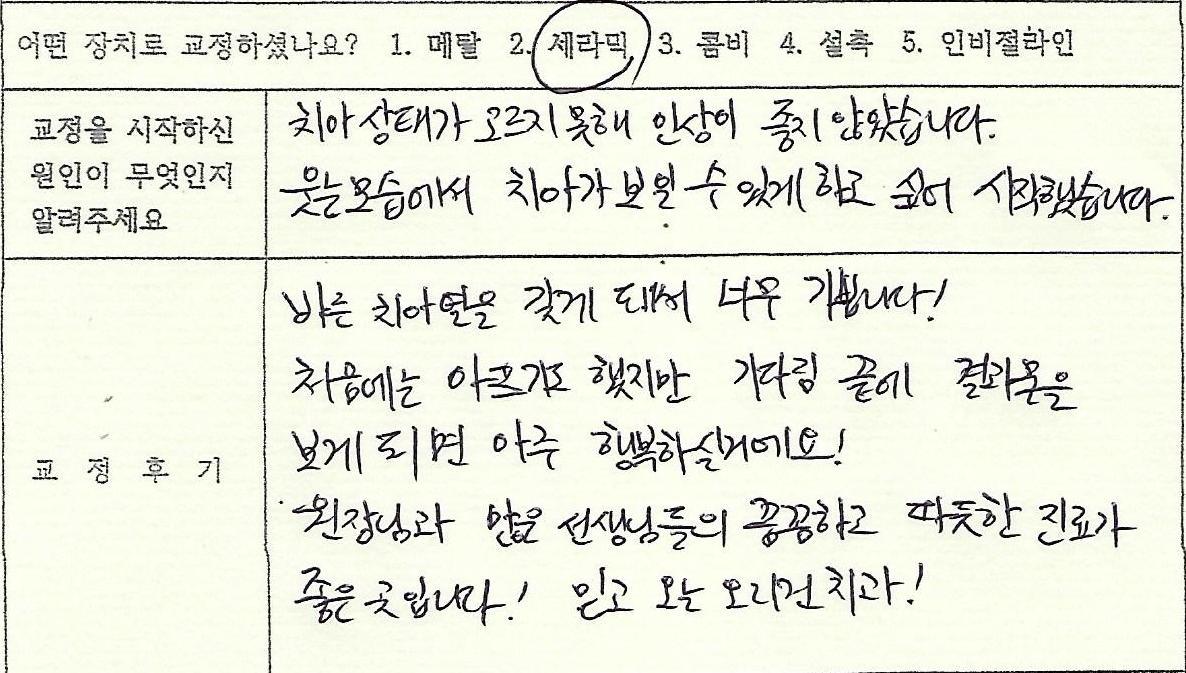 어떤 장치로 교정하셨나요? 1. 메탈 2. 세라믹 3. 콤비 4. 설측 5. 인비절라인
교정을 시작하신
원인이 무엇인지
알려주세요
치아상태가 오르지못해 인상이 좋지 않았습니다.
웃는모습에서 치아가보일 수 있게하고 싶어 시작했습니다.
교 정 후 기
바른 치아열을 갖게 돼서 너무 기쁩니다!
처음에는 아프기도 했지만 기다림 끝에 결과물을
보게되면 아주 행복하실거에요!
원장님과 많은 선생님들의 꼼꼼하고 따뜻한 진료가
좋은 곳입니다! 믿고 오는 오리건치과!